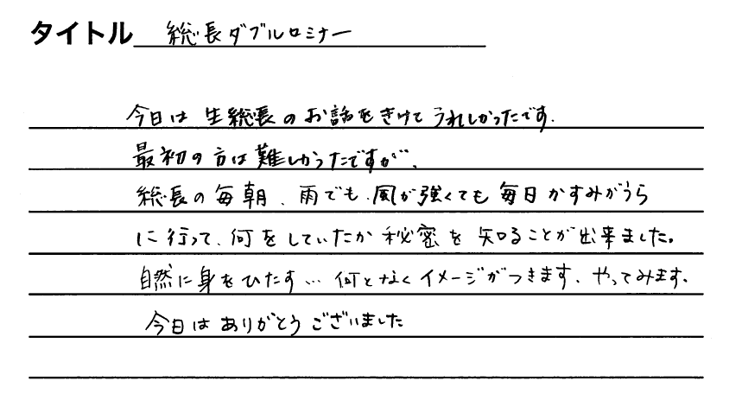 タイトル 総長ダブルセミナー
今日は生総長のお話をきけてうれしかったです.
最初の方は難しかったですが、
総長の毎朝、雨でも、風が強くても毎日かすみがうら
に行って、何をしていたか秘密を知ることが出来ました。
自然に身をひたす…何となくイメージがつきます、やってみます.
今日はありがとうございました